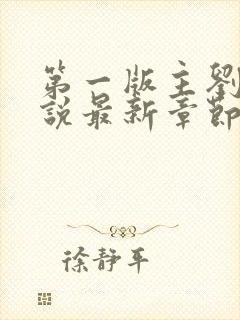 第一版主劉
說最新章節
徐靜平